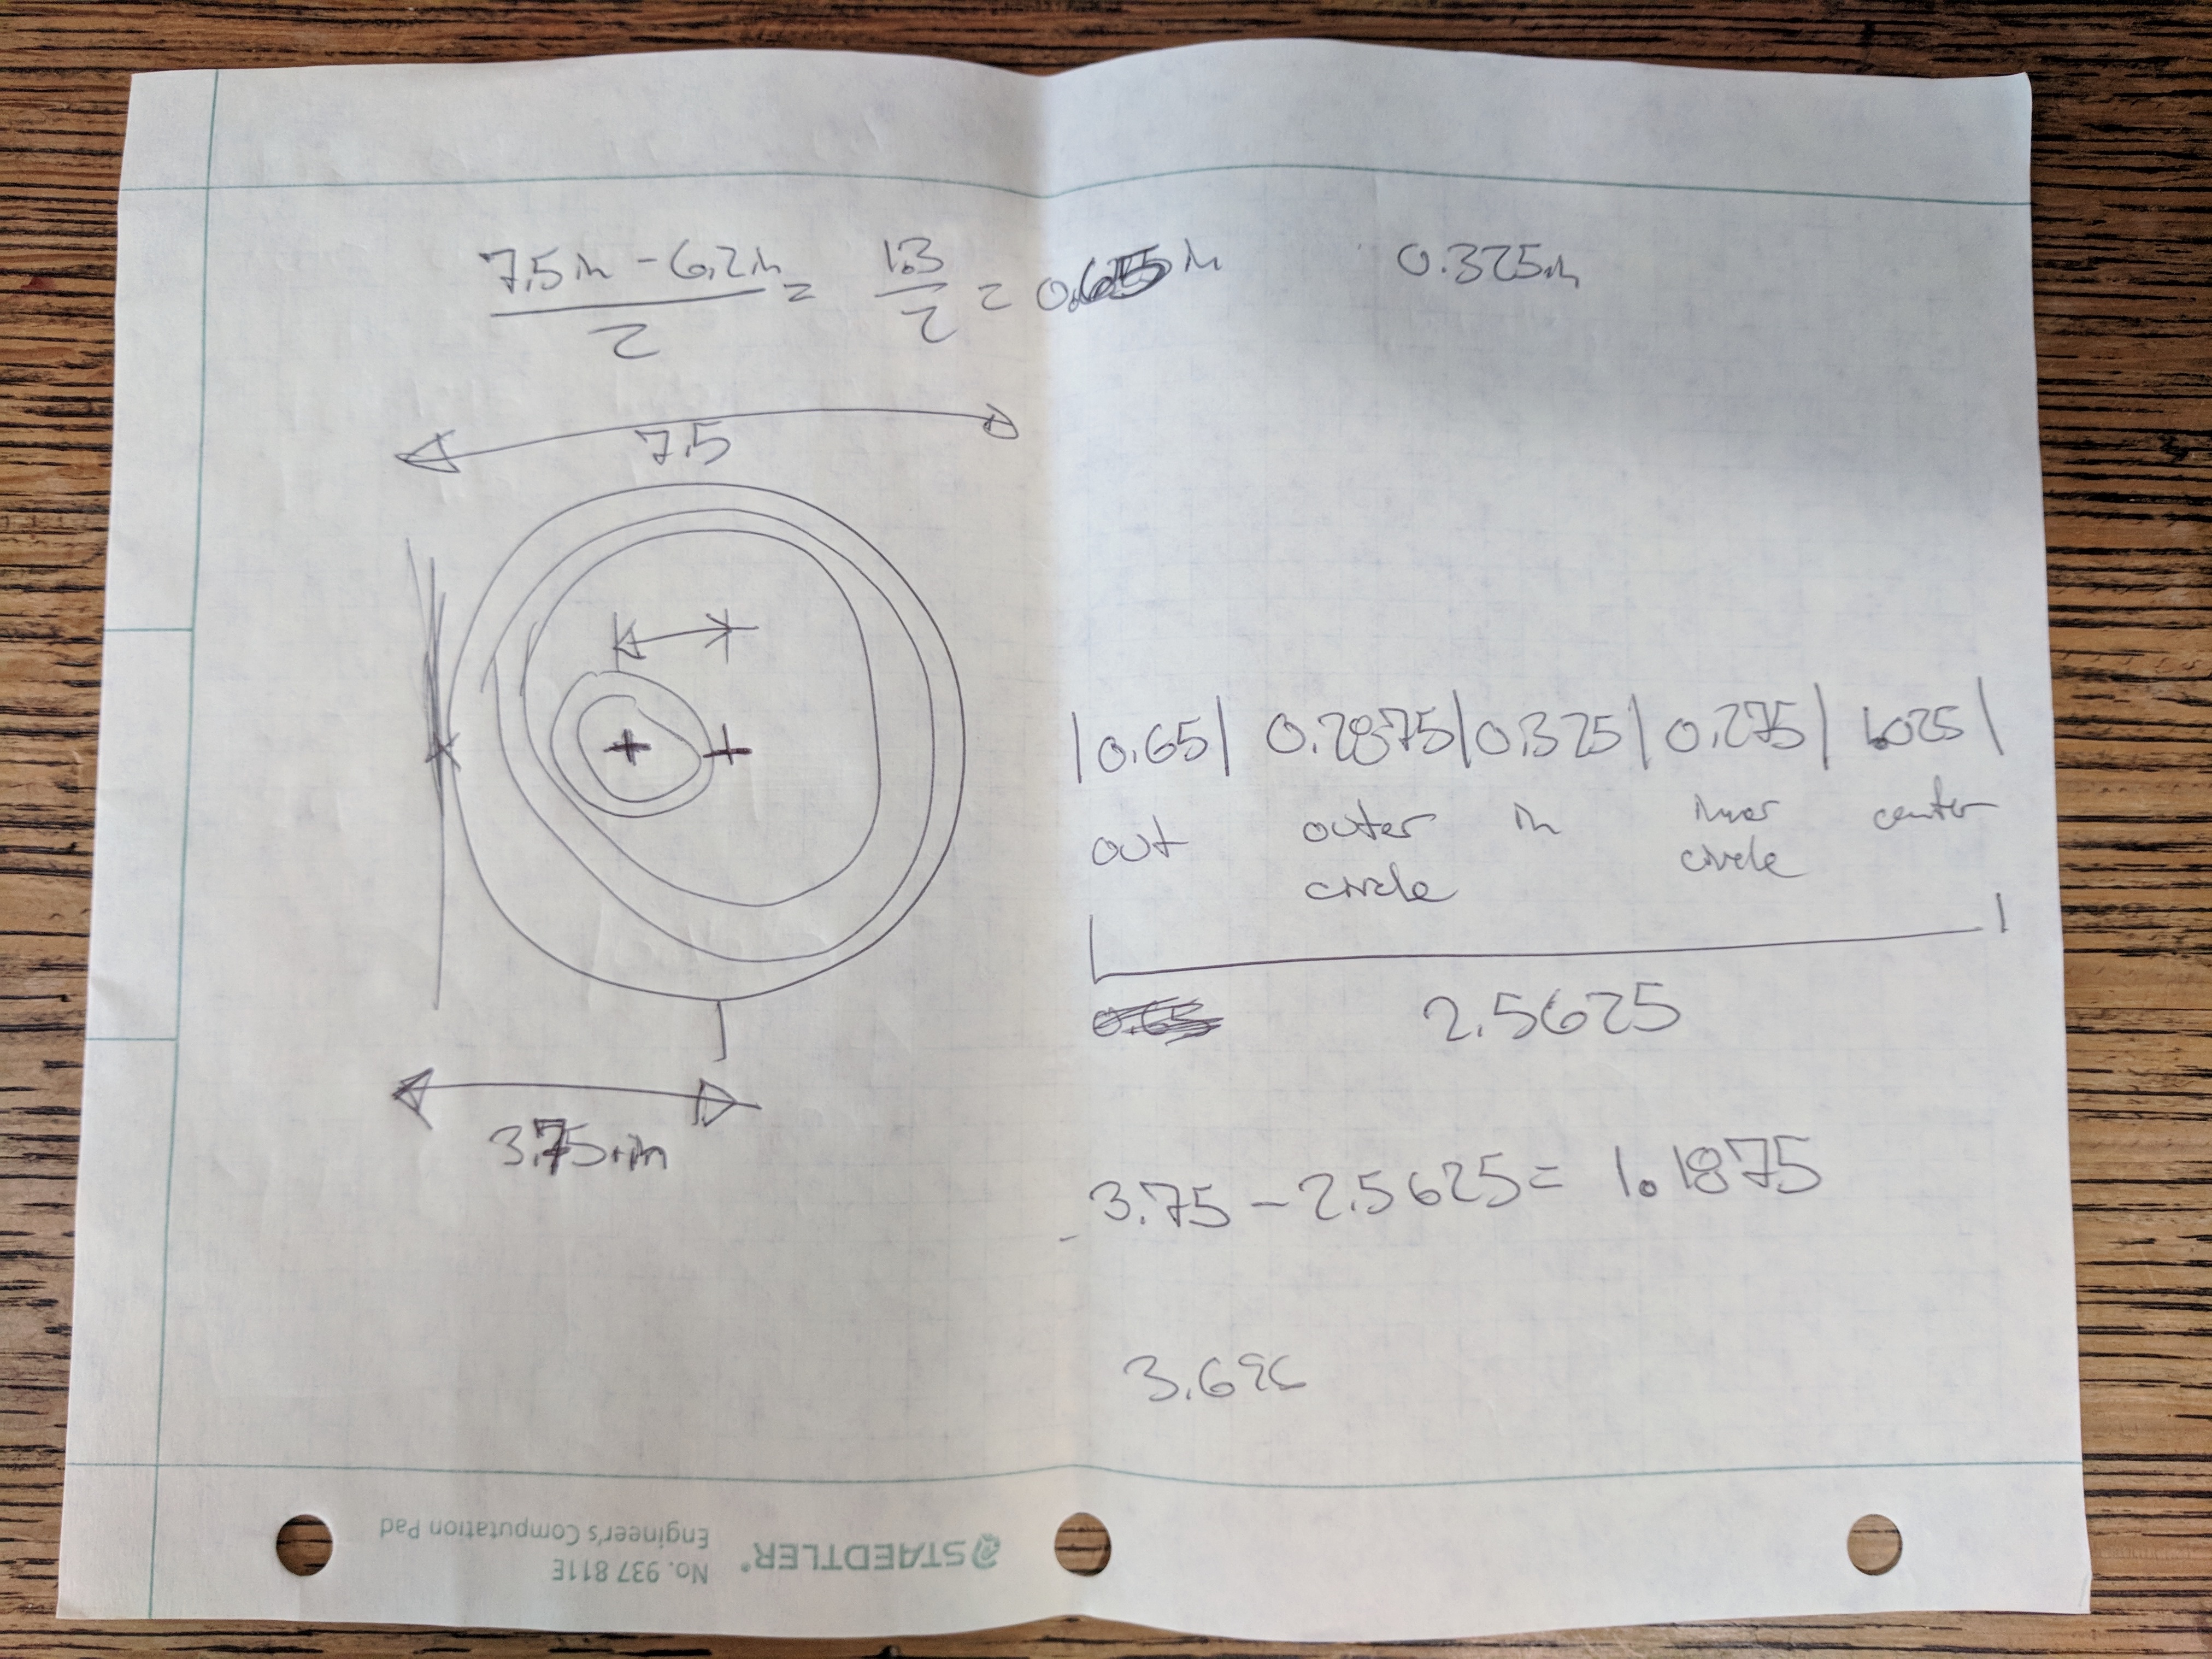 7.5in - 6.2in = 1.3 = 0.65 in
2 2
0.325in
7.5
3.75in
|0.65| 0.2875|0.325|0.275| 1.025|
out outer in inner center
circle circle
0.65 2.5625
3.75 - 2.5625 = 1.1875
No. 937 811E
Engineer's Computation Pad
STAEDTLER®